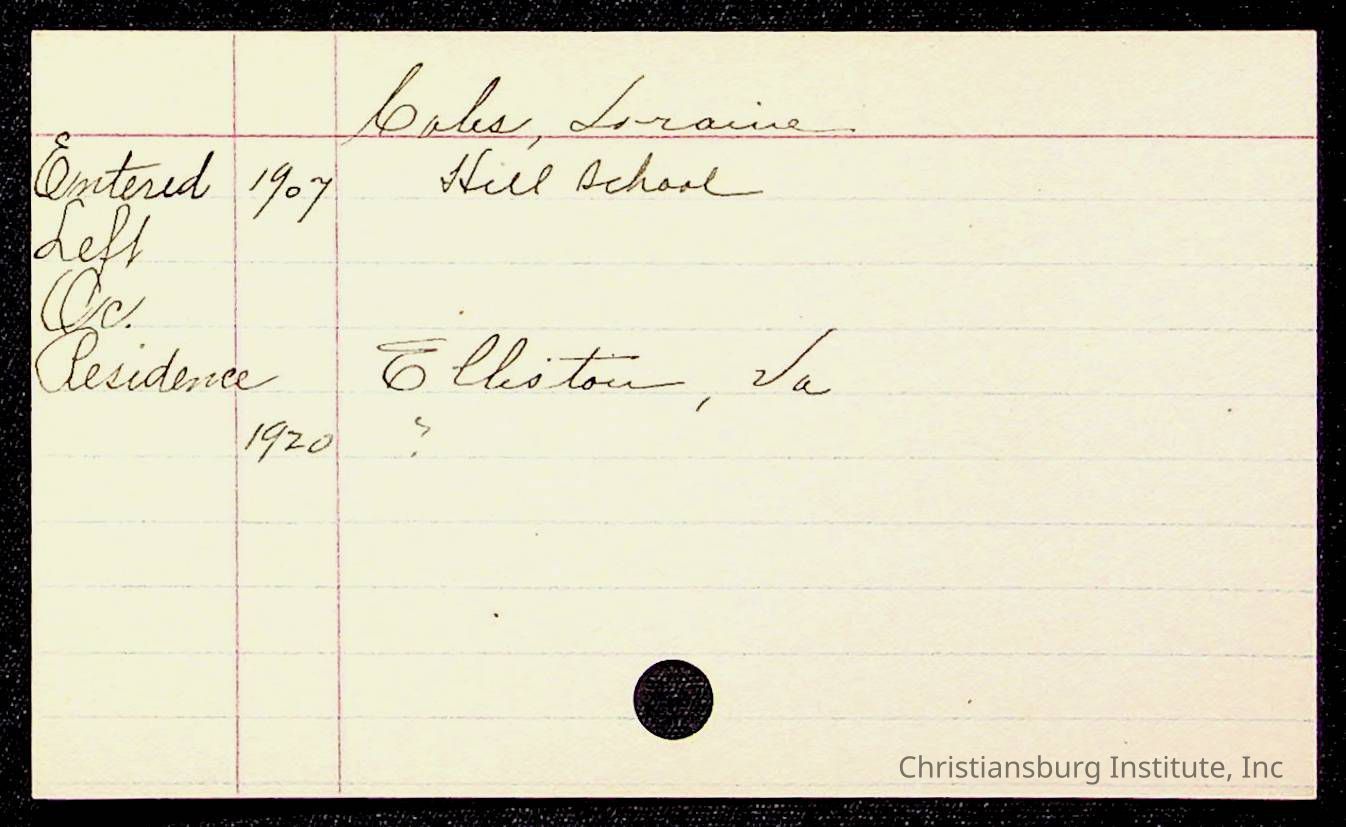 Coles, Loraine
Entered 1907 Hill School
Left
Oc.
Residence Elliston, Va
1920 ?
Christiansburg Institute, Inc